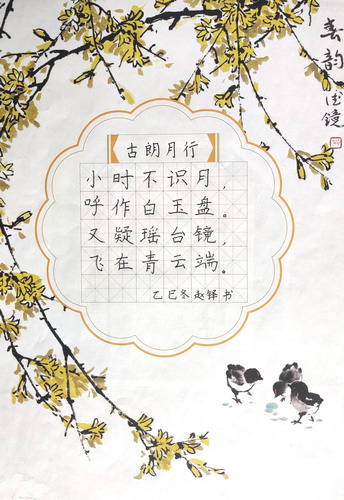 古朗月行
小时不识月，
呼作白玉盘。
又疑瑶台镜，
飞在青云端。
乙巳冬赵铎书
春韵